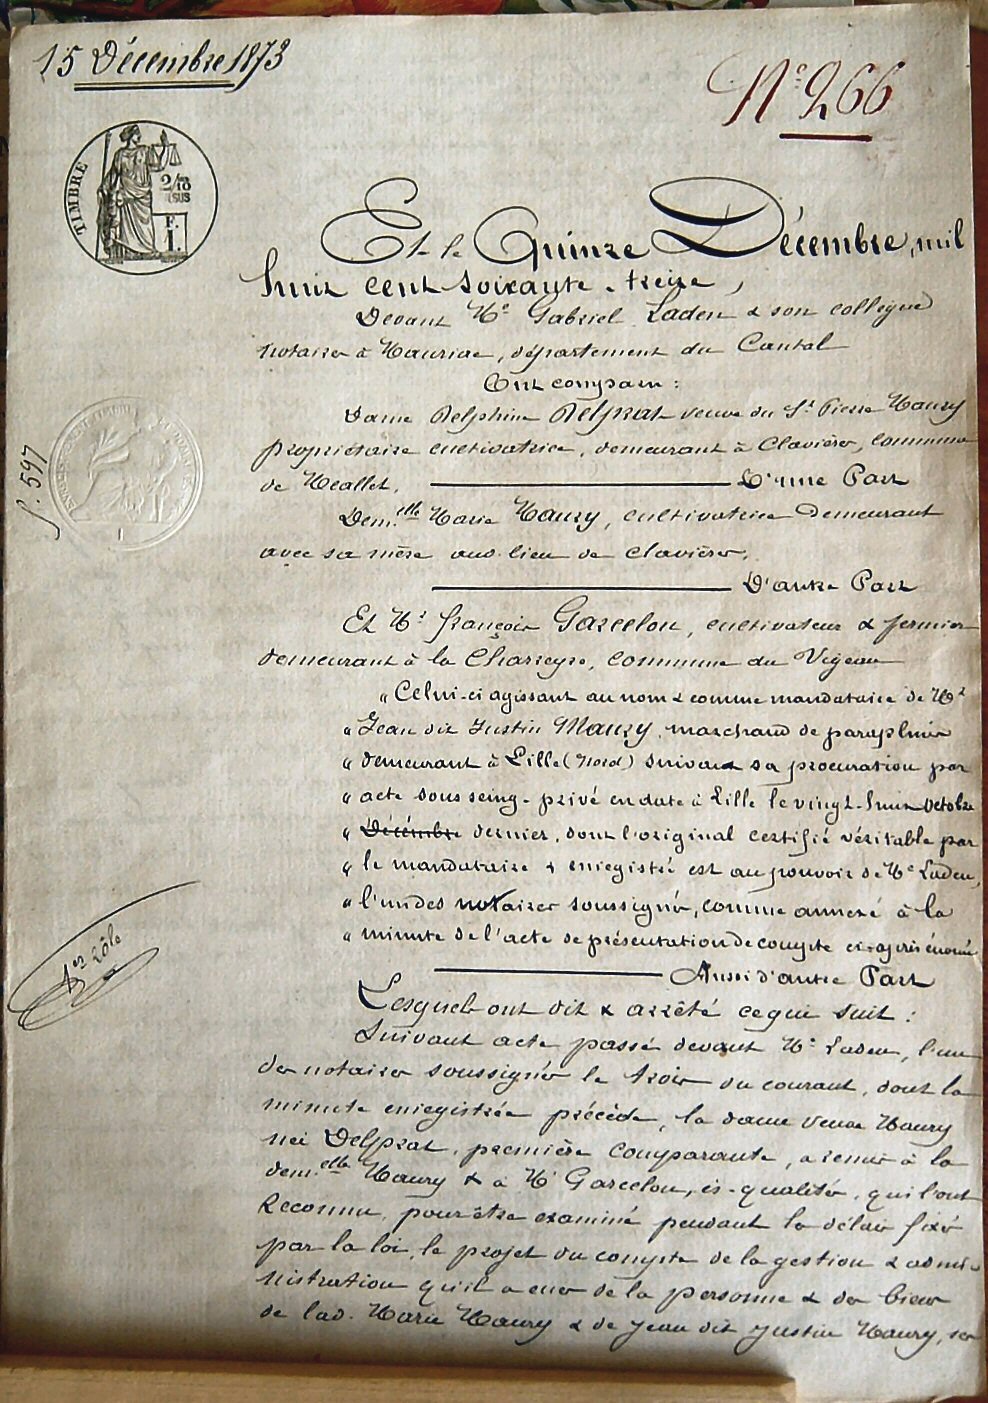 15 Décembre 1873
N° 266
TIMBRE
2/10
SUS
F.
1.
Et le Quinze Décembre, mil
huit cent soixante-treize,
Devant Me Gabriel Laden & son collègue
notaires à Mauriac, département du Cantal
Ont comparu :
Dame Delphine Delprat veuve du Sr Pierre Maury
propriétaire cultivatrice, demeurant à Clavières, commune
de Méallet, D'une Part
S. 597
Dem.elle Marie Maury, cultivatrice demeurant
avec sa mère aud. lieu de Clavières,
D'autre Part
Et Mr François Garcelon, cultivateur & fermier
demeurant à la Charreyre, commune du Vigean
„ Celui-ci agissant au nom & comme mandataire de Mr
„ Jean dit Justin Maury, marchand de parapluies
„ demeurant à Lille (Nord) suivant sa procuration par
„ acte sous seing-privé en date à Lille le vingt-huit octobre
„ Décembre dernier, dont l'original certifié véritable par
„ le mandataire & enregistré est au pouvoir de Me Laden,
„ l'un des notaires soussignés, comme annexé à la
„ minute de l'acte de présentation de compte ci-après énoncé
Aussi d'autre Part
1er rôle
Lesquels ont dit & arrêté ce qui suit :
Suivant acte passé devant Me Laden, l'un
des notaires soussignés le trois du courant, dont la
minute enregistrée précède, la dame veuve Maury
née Delprat, première comparante, a remis à la
dem.elle Maury & à Mr Garcelon, ès-qualités, qui l'ont
Reconnu, pour être examiné pendant le délai fixé
par la loi, le projet du compte de la gestion & admi-
nistration qu'il a eues de la personne & des biens
de lad. Marie Maury & de Jean dit Justin Maury, ses